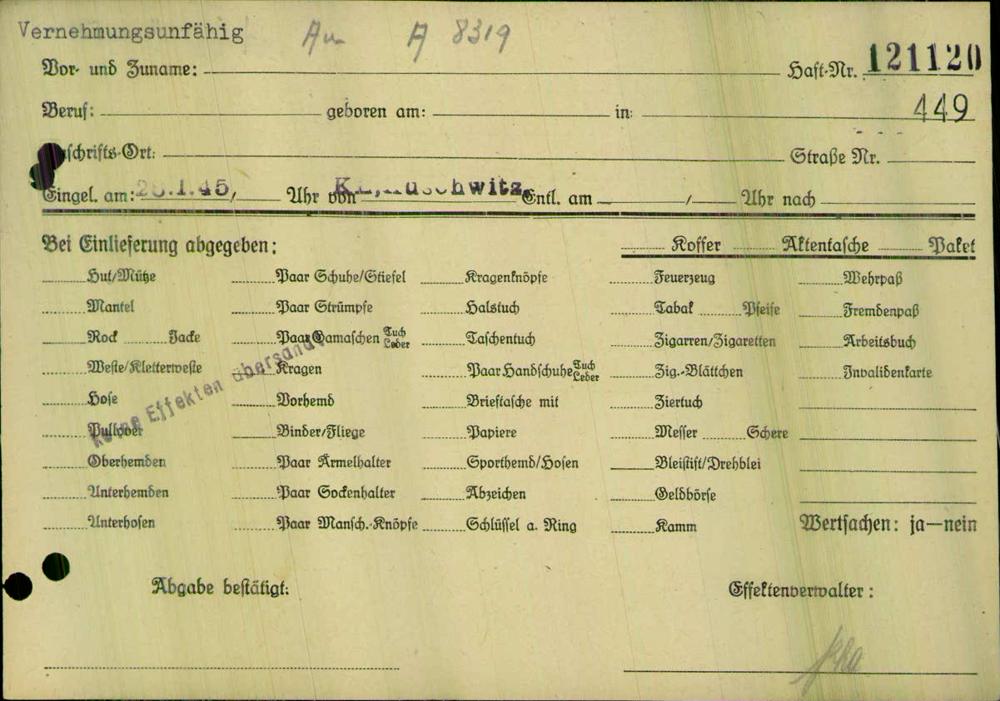 Vernehmungsunfähig
Au A 8319
Vor- und Zuname: Haft-Nr. 121120
Beruf: geboren am: in: 449
schrifts-Ort: Straße Nr.
Eingel. am: 26.1.45, / Uhr von KL,Auschwitz, Entl. am / Uhr nach
Bei Einlieferung abgegeben: Koffer Aktentasche Paket
Hut/Mütze Paar Schuhe/Stiefel Kragenknöpfe Feuerzeug Wehrpaß
Mantel Paar Strümpfe Halstuch Tabak Pfeife Fremdenpaß
Rock Jacke Paar Gamaschen Tuch Leder Taschentuch Zigarren/Zigaretten Arbeitsbuch
Weste/Kletterweste Kragen Paar Handschuhe Tuch Leder Zig.-Blättchen Invalidenkarte
Hose Vorhemd Brieftasche mit Ziertuch
Pullover Binder/Fliege Papiere Messer Schere
Oberhemden Paar Ärmelhalter Sporthemd/Hosen Bleistift/Drehblei
Unterhemden Paar Sockenhalter Abzeichen Geldbörse
Unterhosen Paar Mansch.-Knöpfe Schlüssel a. Ring Kamm Wertsachen: ja—nein
Keine Effekten übersandt
Abgabe bestätigt: Effektenverwalter: